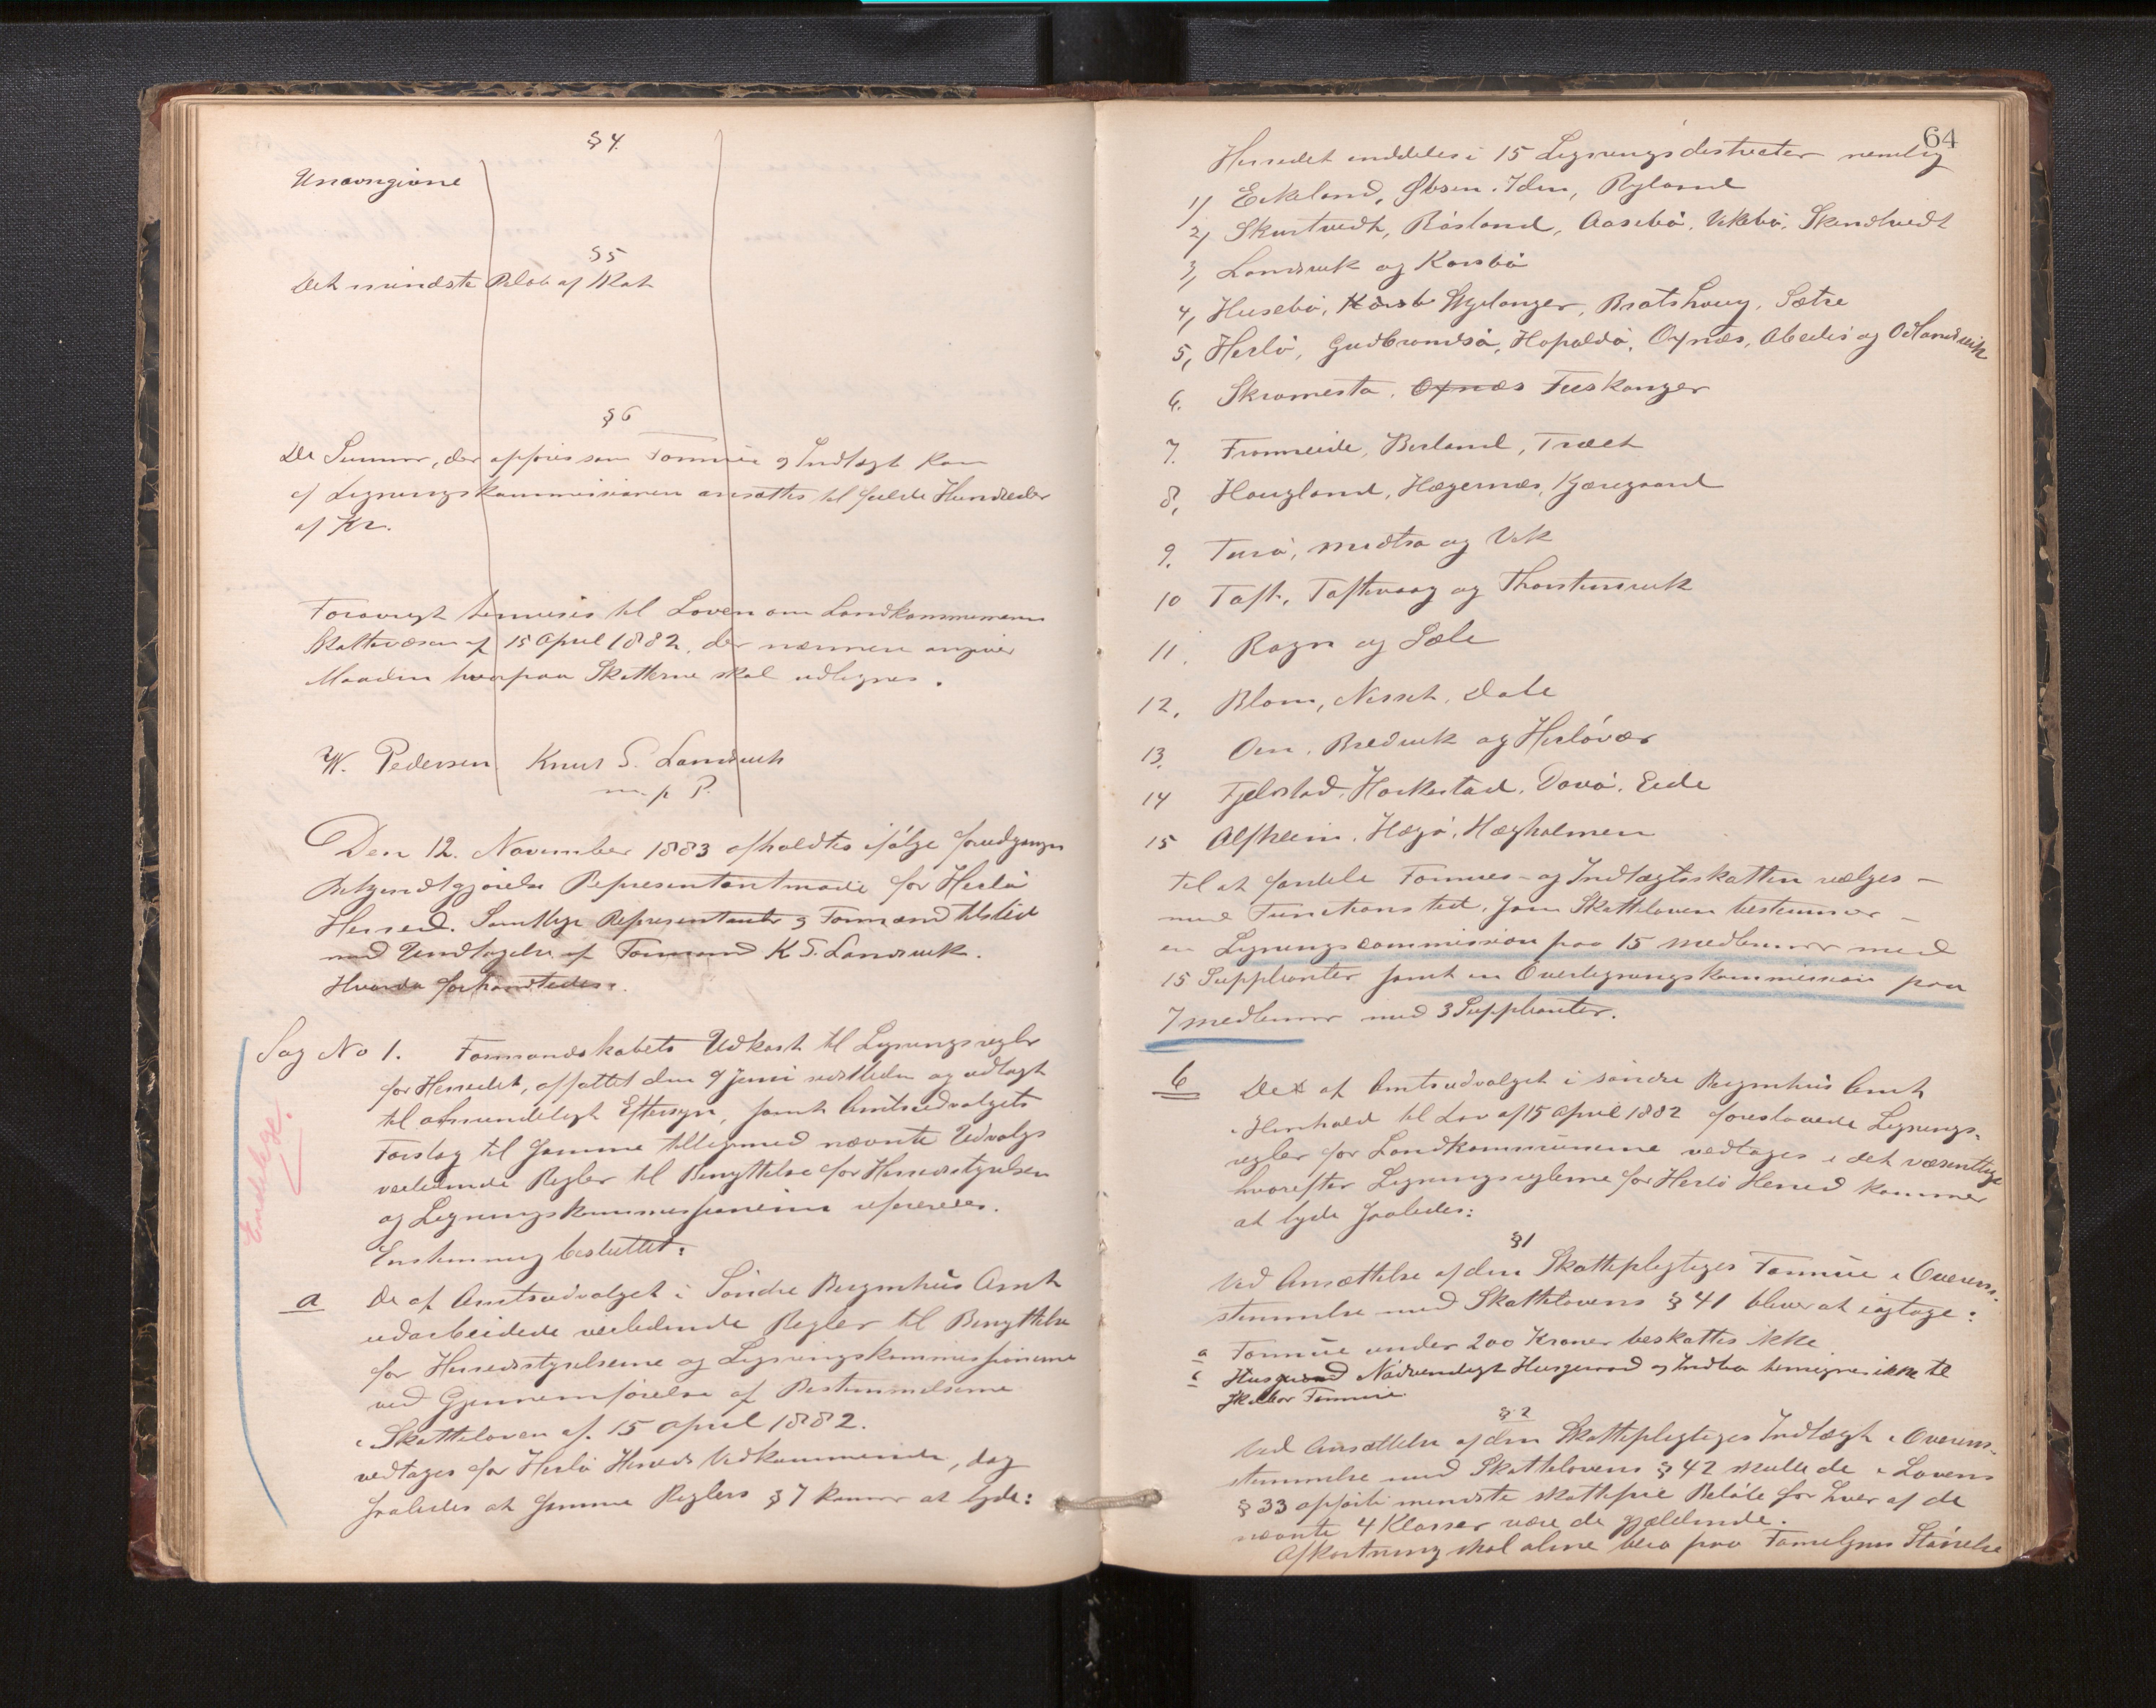 § 4.
Unævngivne
§ 5
Det mindste Beløb af Skat
§ 6
De Summer, der opføres som Formue og Indtægt kan
af Ligningskommissionen ansættes til fulde Hundreder
af Kr.
Forøvrigt henvises til Loven om Landkommunernes
Skattevæsen af 15 April 1882, der nærmere angiver
Maaden hvorpaa Skatterne skal udlignes.
W. Pedersen Knut S. Landsvik
m. p. P.
Den 12. November 1883 afholdtes ifølge forudgangen
Bekjendtgjørelse Repræsentantmøde for Herlø
Herred. Samtlige Repræsentanter og Formænd tilstede
med Undtagelse af Formand K S. Landsvik.
Hvorda forhandledes:
Sag No 1. Formandskabets Udkast til Ligningsregler
for Herredet, affattet den 9 Juni sidstleden og udlagt
til almindeligt Eftersyn, samt Amtsudvalgets
Forslag til samme tilligemed nævnte Udvalgs
veiledende Regler til Benyttelse for Herredsstyrelsen
og Ligningskommissionerne refereredes.
Enstemmig besluttet:
Endelige.
a De af Amtsudvalget i Søndre Bergenhus Amt
udarbeidede veiledende Regler til Benyttelse
for Herredsstyrelserne og Ligningskommissionerne
ved Gjennemførelse af Bestemmelserne
i Skatteloven af 15 April 1882.
vedtages for Herlø Herreds Vedkommende, dog
saaledes at samme Reglers § 7 kommer at lyde:
64
Herredet inddeles i 15 Ligningsdistricter nemlig
1) Eikeland, Øbsen. Iden, Ryland
2) Skurtvedt, Røsland, Aasebø, Vikebø, Skendtvedt
3, Landsvik og Karsbø
4, Husebø, Karsb Hjelanger, Bratshoug, Sætre
5, Herlø, Gudbrandsø, Hopaldø, Oxnæs, Abedis og Odlandsvik
6. Skramesta, Oxnæs Fuskanger
7. Frommeide, Berland, Træet
8, Hougland, Hægernæs, Kjæregaard
9. Turø, Midtsø og Vik
10 Toft, Toftevaag og Thorstensvik
11. Rogn og Sæle
12, Blom, Nesset, Dale
13. Oen, Bredvik og Herløvær
14 Fjelstad, Harkestad, Davø, Eide
15 Alfheim, Hægø, Hægholmen
Til at fordele Formues- og Indtægtsskatten vælges –
med Functionstid, som Skatteloven bestemmer –
en Ligningscommission paa 15 Medlemmer med
15 Suppleanter samt en Overligningskommission paa
7 Medlemmer med 3 Suppleanter.
b De af Amtsudvalget i søndre Bergenhus Amt
i Henhold til Lov af 15 April 1882 foreslaaede Lignings-
regler for Landkommunerne vedtages i det væsentlige
hvorefter Ligningsreglerne for Herlø Herred kommer
at lyde saaledes:
§ 1
Ved Ansættelse af den Skattepligtiges Formue i Overens-
stemmelse med Skattelovens § 41 bliver at iagtage:
a Formue under 200 Kroner beskattes ikke
c Husgeraad Nødvendigt Husgeraad og Indbo henregnes ikke til
skatbar Formue.
§ 2
Ved Ansættelse af den Skattepligtiges Indtægt i Overens-
stemmelse med Skattelovens § 42 skulle de i Lovens
§ 33 opførte mindste skattefrie Beløbe for hver af de
nævnte 4 Klasser være de gjældende.
Afkortning skal alene bero paa Familjens Størrelse